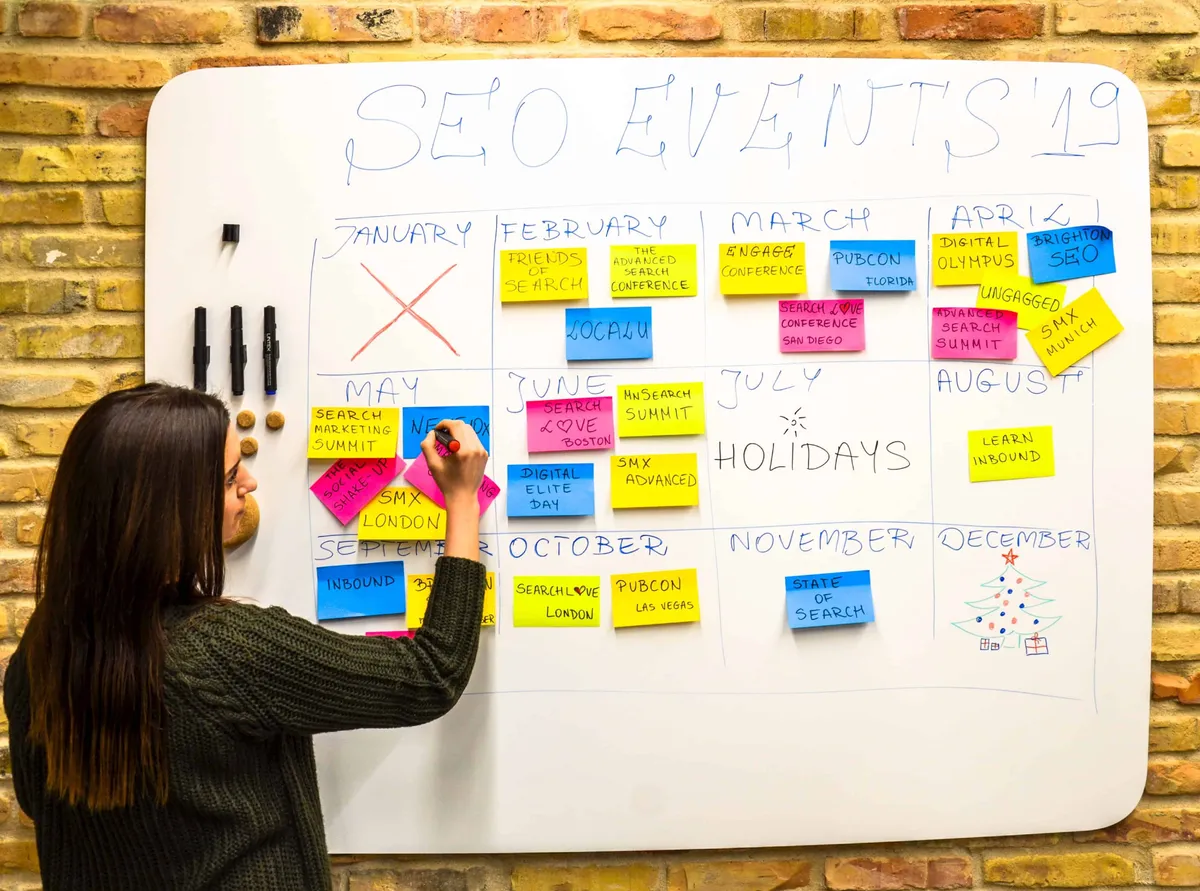 SEO EVENTS'19
JANUARY
FEBRUARY
MARCH
APRIL
FRIENDS
OF
SEARCH
THE
ADVANCED
SEARCH
CONFERENCE
LOCALU
ENGAGE
CONFERENCE
PUBCON
FLORIDA
SEARCH L♥VE
CONFERENCE
SAN DIEGO
DIGITAL
OLYMPUS
BRIGHTON
SEO
UNGAGGED
ADVANCED
SEARCH
SUMMIT
SMX
MUNICH
MAY
JUNE
JULY
AUGUST
SEARCH
MARKETING
SUMMIT
THE
SOCIAL
SHAKE-UP
SMX
LONDON
SEARCH
L♥VE
BOSTON
MNSEARCH
SUMMIT
DIGITAL
ELITE
DAY
SMX
ADVANCED
HOLIDAYS
LEARN
INBOUND
SEPTEMBER
OCTOBER
NOVEMBER
DECEMBER
INBOUND
SEARCHL♥VE
LONDON
PUBCON
LAS VEGAS
STATE
OF
SEARCH